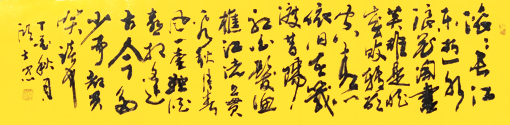 滚滚长江
东逝水
浪花淘尽
英雄是非
成败转头
空青山
依旧在几
度夕阳
红白发渔
樵江渚上惯
看秋月春
风一壶浊酒
喜相逢
古今多
少事都付
笑谈中
丁亥秋月